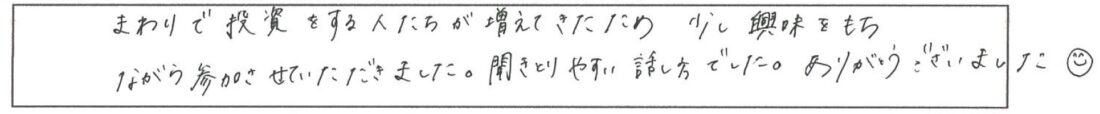 まわりで投資をする人たちが増えてきたため 少し興味をもち
ながら参加させていただきました。聞きとりやすい話し方でした。ありがとうございました☺